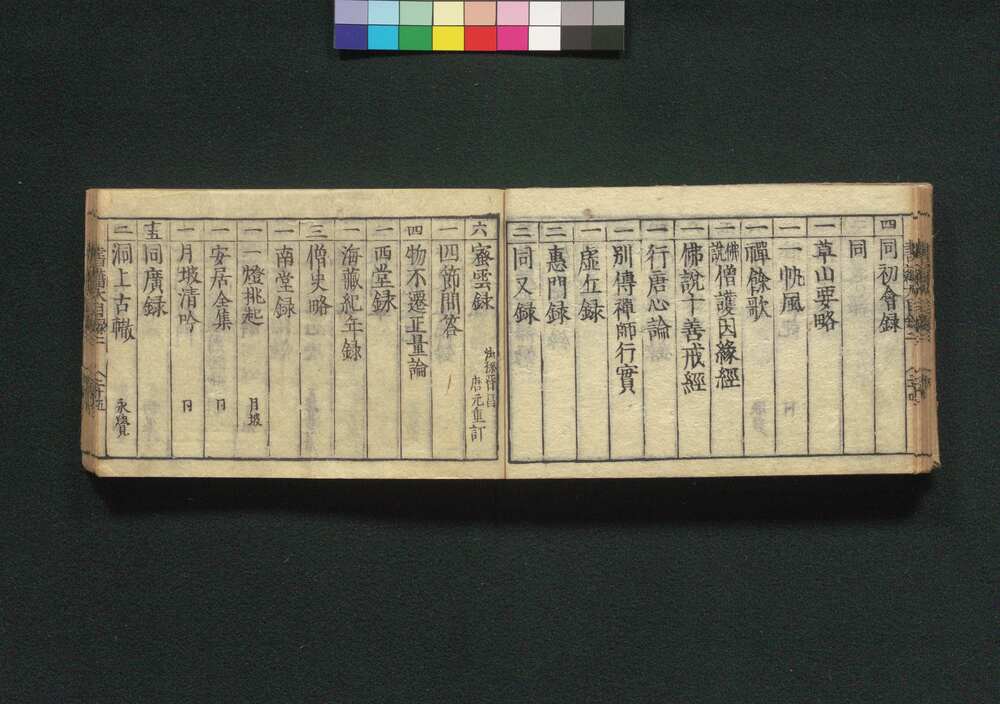 四 同初會録
同
一 草山要略
一 一帆風
一 禪餘歌
二 佛説僧護因緣經
一 佛說十善戒經
一 行唐心論
一 別傳禅師行實
一 虚丘録
二 惠門録
三 同又録
六 密雲録 唐元重訂
一 四節問答
四 物不遷正量論
一 西堂録
一 海藏紀年録
三 僧史略
一 南堂録
一 一燈挑起 月坡
一 安居全集 同
一 月坡清吟 同
十五 同廣録
二 洞上古轍 永覺